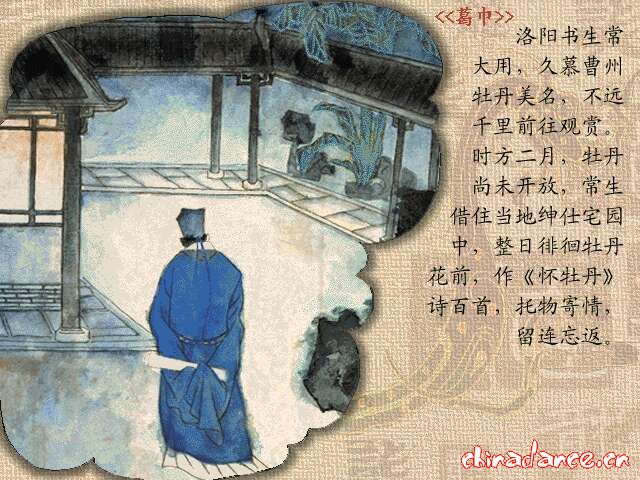 <<葛巾>>
洛阳书生常
大用，久慕曹州
牡丹美名，不远
千里前往观赏。
时方二月，牡丹
尚未开放，常生
借住当地绅仕宅园
中，整日徘徊牡丹
花前，作《怀牡丹》
诗百首，托物寄情，
留连忘返。
chinadance.cn